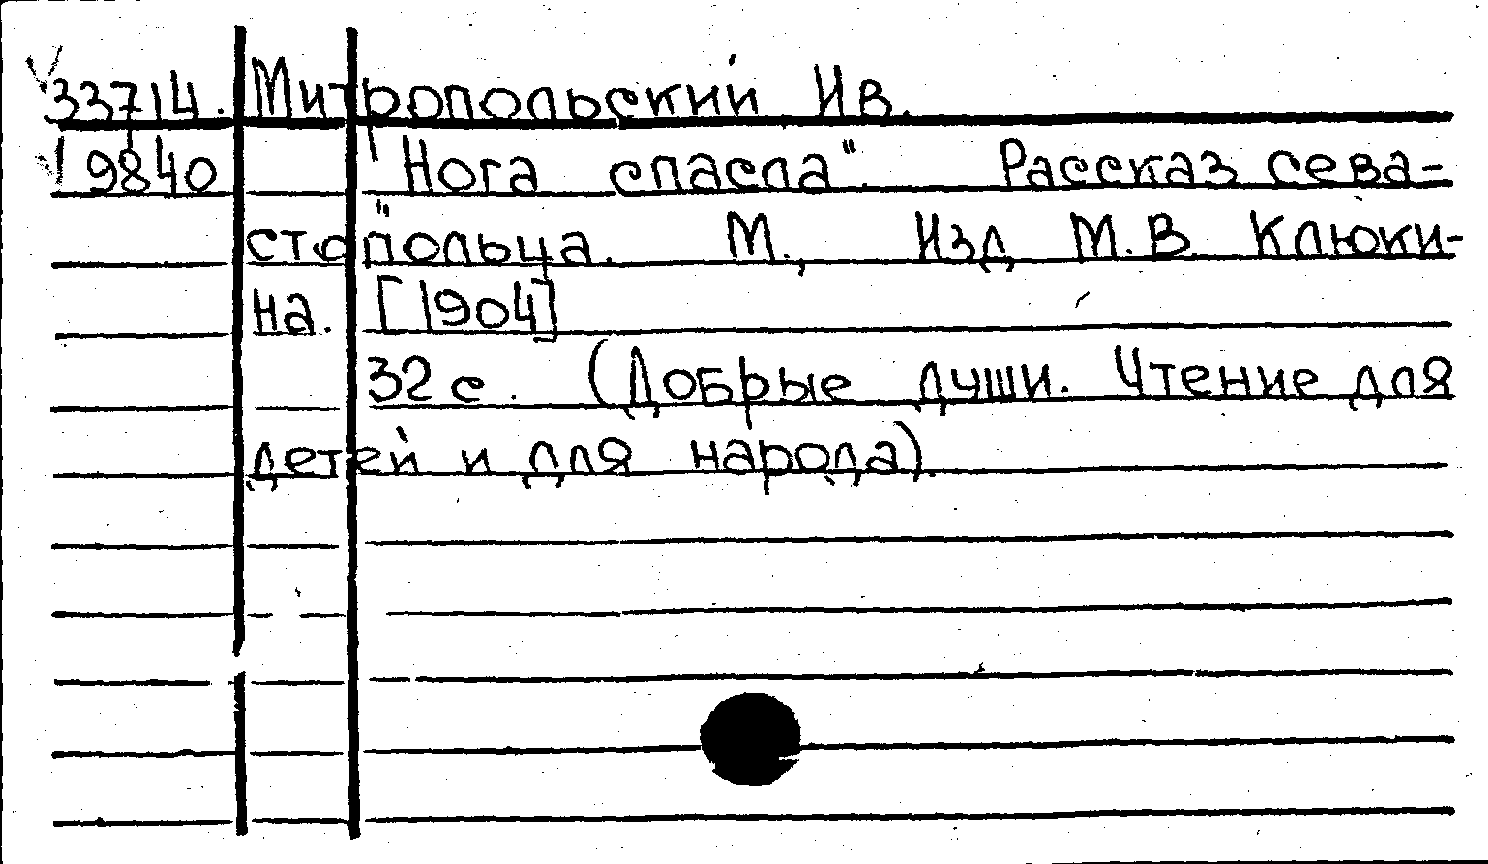 33714. Митропольский Ив.
19840 "Нога спасла". Рассказ сева-
стопольца. М., Изд М.В. Клюки-
на. [1904]
32 с. (Добрые души. Чтение для
детей и для народа).